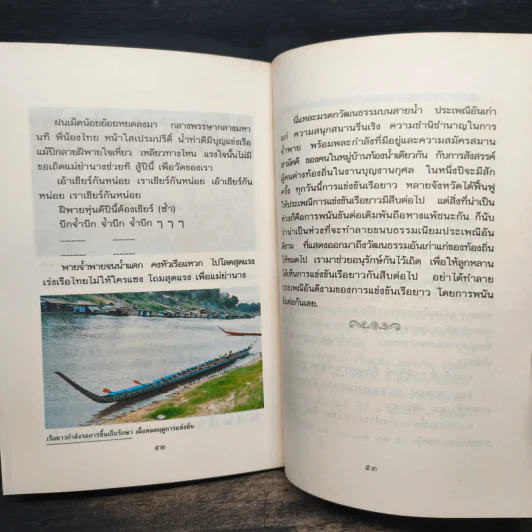 ฝนเม็ดน้อยย้อยหยดลงมา กลางพรรษากลางมหา
นที พี่น้องไทย หน้าใสเปรมปรีดิ์ น้ำท่าดีมีบุญแข่งเรือ
แม้ปีกลายฝีพายใจเที่ยว เหลียวทางไหน แรงใจนั้นไม่มี
ขอเถิดแม่ย่านางช่วยที สู้ปีนี้ เพื่อวัดของเรา
เอ้าเชียร์กันหน่อย เราเชียร์กันหน่อย เอ้าเชียร์กัน
หน่อย เราเชียร์กันหน่อย
ฝีพายทุ่นดีปีนี้ต้องเชียร์ (ซ้ำ)
ปึกจ้ำปึก จ้ำปึก จ้ำปึก ๆ ๆ ๆ
............ ............
............ ............
พายจ้ำพายจนน้ำแตก คงหัวเรือแหวก ไปโลดสุดแรง
เร่งเรือไทยไม่ให้ใครแซง โถมสุดแรง เพื่อแม่ย่านาง
เรือยาวกำลังรอการขึ้นเก็บรักษา เมื่อหมดฤดูการแข่งขัน
๕๒
นี่แหละมรดกวัฒนธรรมบนสายน้ำ ประเพณีอันเก่า
แก่ ความสนุกสนานรื่นเริง ความชำนิชำนาญในการ
จ้ำพาย พร้อมพละกำลังที่มีอยู่และความสมัครสมาน
สามัคคี ของคนในหมู่บ้านท้องน้ำเดียวกัน กับการสังสรรค์
ผู้คนต่างท้องถิ่นในงานบุญงานกุศล ในหนึ่งปีจะมีสัก
ครั้ง ทุกวันนี้การแข่งขันเรือยาว หลายจังหวัดได้ฟื้นฟู
ให้ประเพณีการแข่งขันเรือยาวมีสืบต่อไป แต่สิ่งที่น่าเป็น
ห่วงก็คือการพนันขันต่อเดิมพันถือหางแพ้ชนะกัน ก็นับ
ว่าน่าเป็นห่วงที่จะทำลายขนบธรรมเนียมประเพณีอัน
ดีงาม ที่แสดงออกมาถึงวัฒนธรรมอันเก่าแก่ของท้องถิ่น
ให้หมดไป เรามาช่วยอนุรักษ์กันไว้เถิด เพื่อให้ลูกหลาน
ได้เห็นการแข่งขันเรือยาวกันสืบต่อไป อย่าได้ทำลาย
ประเพณีอันดีงามของการแข่งขันเรือยาว โดยการพนัน
ขันต่อกันเลย.
๕๓